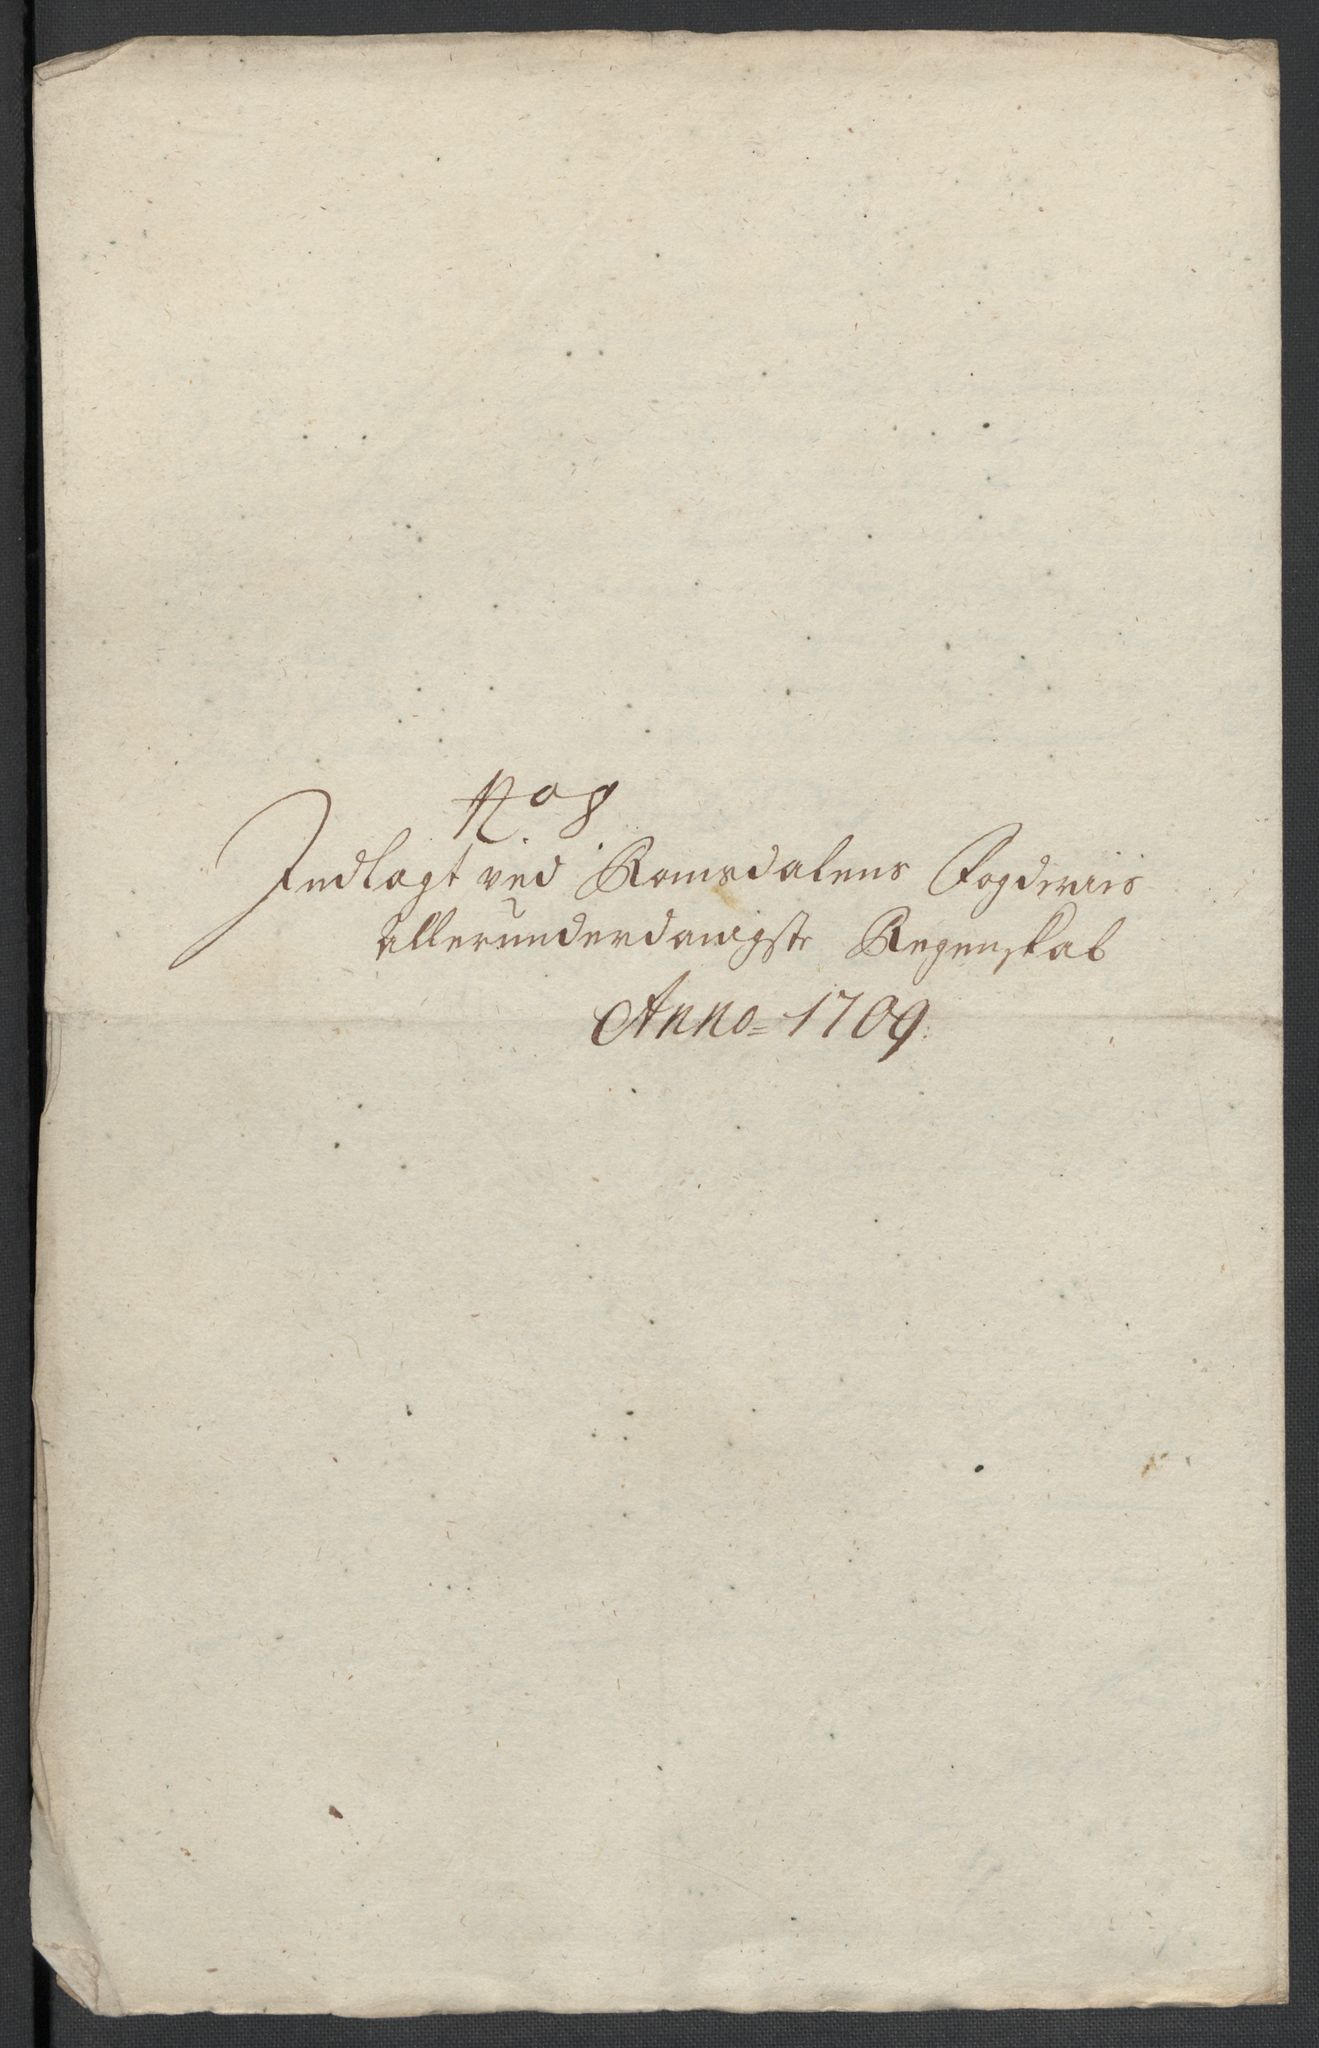 No 8
Indlagt ved Romsdalens Fogderies
allerunderdanigste Regenskab
Anno= 1709.